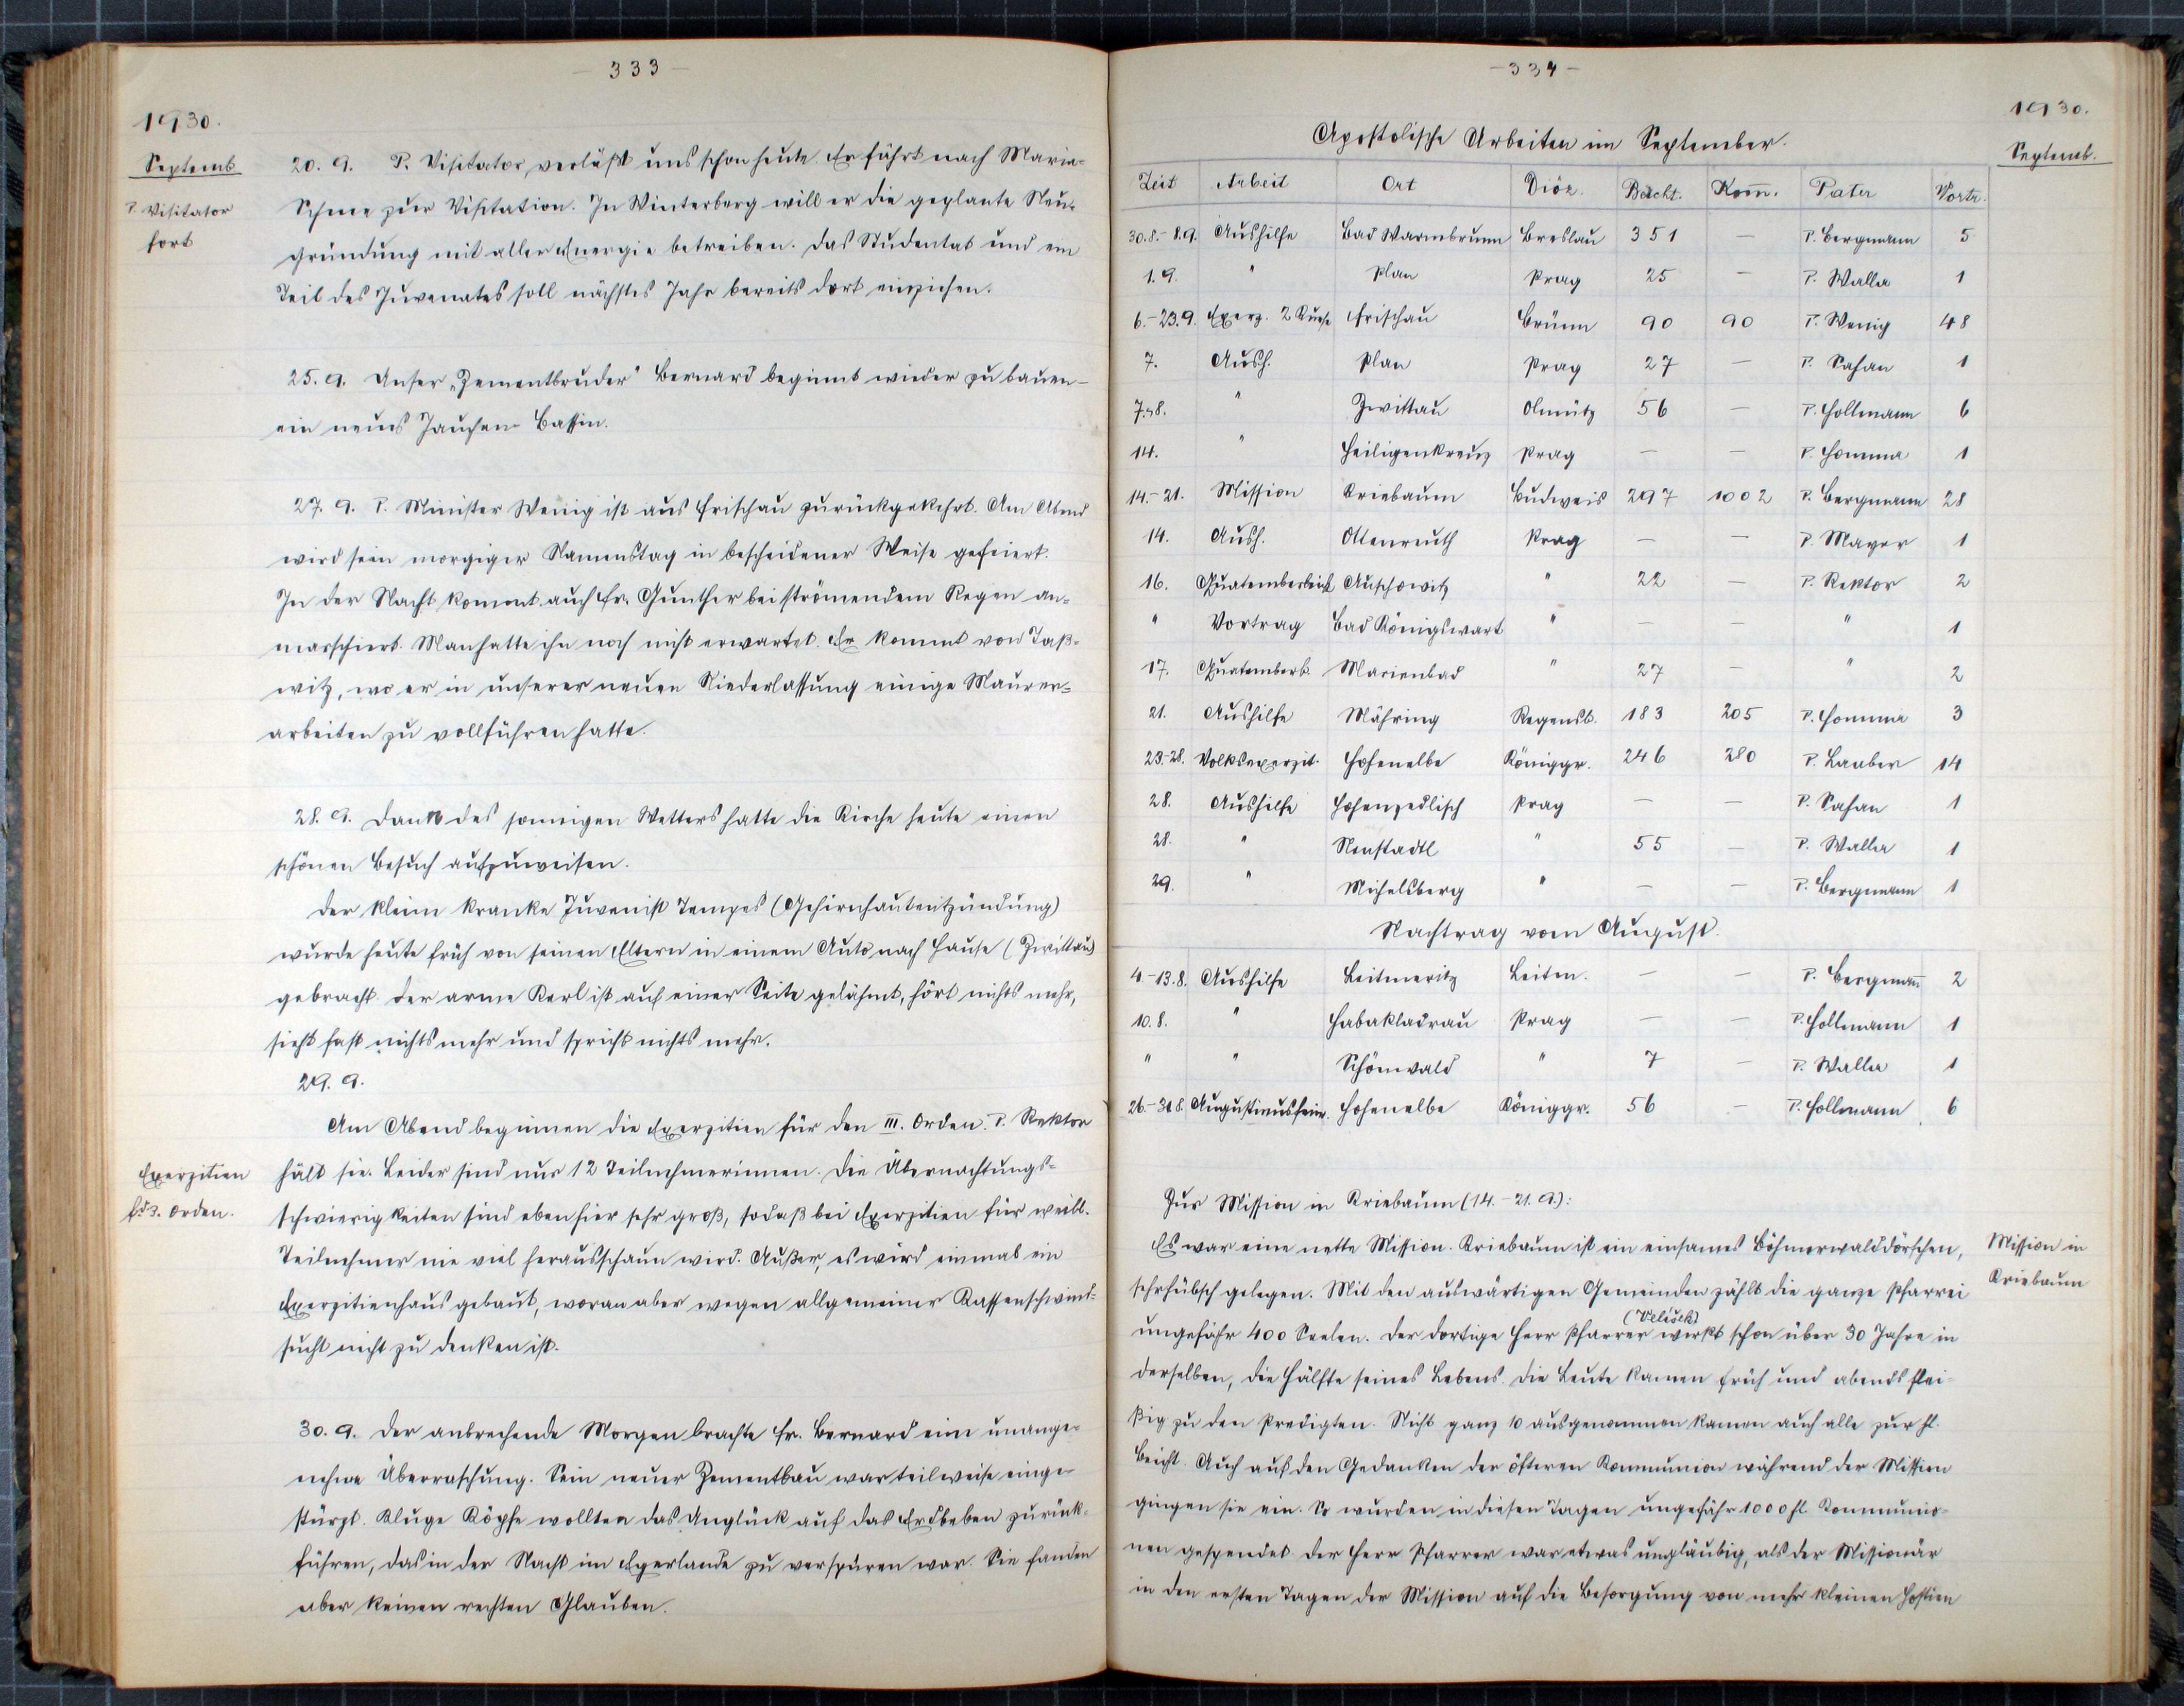 - 333 -
1930.
Septemb.
P. Visitator
fort
20. 9. P. Visitator verläßt uns schon heute. Er fährt nach Maria-
Schnee zur Visitation. In Winterberg will er die geplante Neu-
gründung mit aller Energie betreiben. Das Studentat und ein
Teil des Juvenates soll nächstes Jahr bereits dort einziehen.
25. 9. Unser „Zementbruder" Bernard beginnt wieder zu bauen -
ein neues Jauchen-Bassin.
27. 9. P. Minister Wenig ist aus Frischau zurückgekehrt. Am Abend
wird sein morgiger Namenstag in bescheidener Weise gefeiert.
In der Nacht kommt auch Fr. Gunther bei strömendem Regen an-
marschiert. Man hatte ihn noch nicht erwartet. Er kommt von Taß-
witz, wo er in unserer neuen Niederlassung einige Maurer-
arbeiten zu vollführen hatte.
28. 9. Dank des sonnigen Wetters hatte die Kirche heute einen
schönen Besuch aufzuweisen.
Der kleine kranke Juvenist Tempes (Gehirnhautentzündung)
wurde heute früh von seinen Eltern in einem Auto nach Hause (Zwittau)
gebracht. Der arme Kerl ist auf einer Seite gelähmt, hört nichts mehr,
sieht fast nichts mehr und spricht nichts mehr.
29. 9.
Am Abend beginnen die Exerzitien für den III. Orden. P. Rektor
Exerzitien
f. d. 3. Orden.
hält sie. Leider sind nur 12 Teilnehmerinnen. Die Übernachtungs-
schwierigkeiten sind eben hier sehr groß, sodaß bei Exerzitien für weibl.
Teilnehmer nie viel herausschaun wird. Außer, es wird einmal ein
Exerzitienhaus gebaut, woran aber wegen allgemeiner Kassenschwind-
sucht nicht zu denken ist.
30. 9. Der anbrechende Morgen brachte Fr. Bernard eine unange-
nehme Überraschung. Sein neuer Zementbau war teilweise einge-
stürzt. Kluge Köpfe wollten das Unglück auf das Erdbeben zurück-
führen, das in der Nacht im Egerlande zu verspüren war. Sie fanden
aber keinen rechten Glauben.
- 334 -
1930.
Septemb.
Apostolische Arbeiten im September.
Zeit Arbeit Ort Diöz. Beicht. Kom̄. Pater Vortr.
30.8.-8.9. Aushilfe Bad Warmbrunn Breslau 351 — P. Bergmann 5
1.9. " Plan Prag 25 — P. Walla 1
6.-23.9. Exerz. 2 Kurse Frischau Brünn 90 90 P. Wenig 48
7. Aush. Plan Prag 27 — P. Sahan 1
7.-8. " Zwittau Olmütz 56 — P. Hollmann 6
14. " Heiligenkreuz Prag — — P. Homma 1
14.-21. Mission Kriebaum Budweis 297 1002 P. Bergmann 28
14. Aush. Ottenreuth Prag — — P. Mayer 1
16. Quatemberbeicht Auschowitz " 22 — P. Rektor 2
" Vortrag Bad Königswart " — — " 1
17. Quatemberb. Marienbad " 27 — " 2
21. Aushilfe Mähring Regensb. 183 205 P. Homma 3
23.-28. Volksexerzit. Hohenelbe Königgr. 246 280 P. Lauber 14
28. Aushilfe Hohenzedlisch Prag — — P. Sahan 1
28. " Neustadtl " 55 — P. Walla 1
29. " Michelsberg " — — P. Bergmann 1
Nachtrag vom August.
4.-13.8. Aushilfe Leitmeritz Leitm. — — P. Bergman̄ 2
10.8. " Habakladrau Prag — — P. Hollmann 1
" " Schönwald " 7 — P. Walla 1
26.-31.8. Augustinusfeier Hohenelbe Königgr. 56 — P. Hollmann 6
Zur Mission in Kriebaum (14.-21. 9.):
Es war eine nette Mission. Kriebaum ist ein einsames Böhmerwalddörfchen,
Mission in
Kriebaum
sehr hübsch gelegen. Mit den auswärtigen Gemeinden zählt die ganze Pfarrei
(Velísek)
ungefähr 400 Seelen. Der dortige Herr Pfarrer wirkt schon über 30 Jahre in
derselben, die Hälfte seines Lebens. Die Leute kamen früh und abends flei-
ßig zu den Predigten. Nicht ganz 10 ausgenommen kamen auch alle zur hl.
Beicht. Auch auf den Gedanken der öfteren Kommunion während der Mission
gingen sie ein. So wurden in diesen Tagen ungefähr 1000 hl. Kommunio-
nen gespendet. Der Herr Pfarrer war etwas ungläubig, als der Missionär
in den ersten Tagen der Mission auf die Besorgung von mehr kleinen Hostien